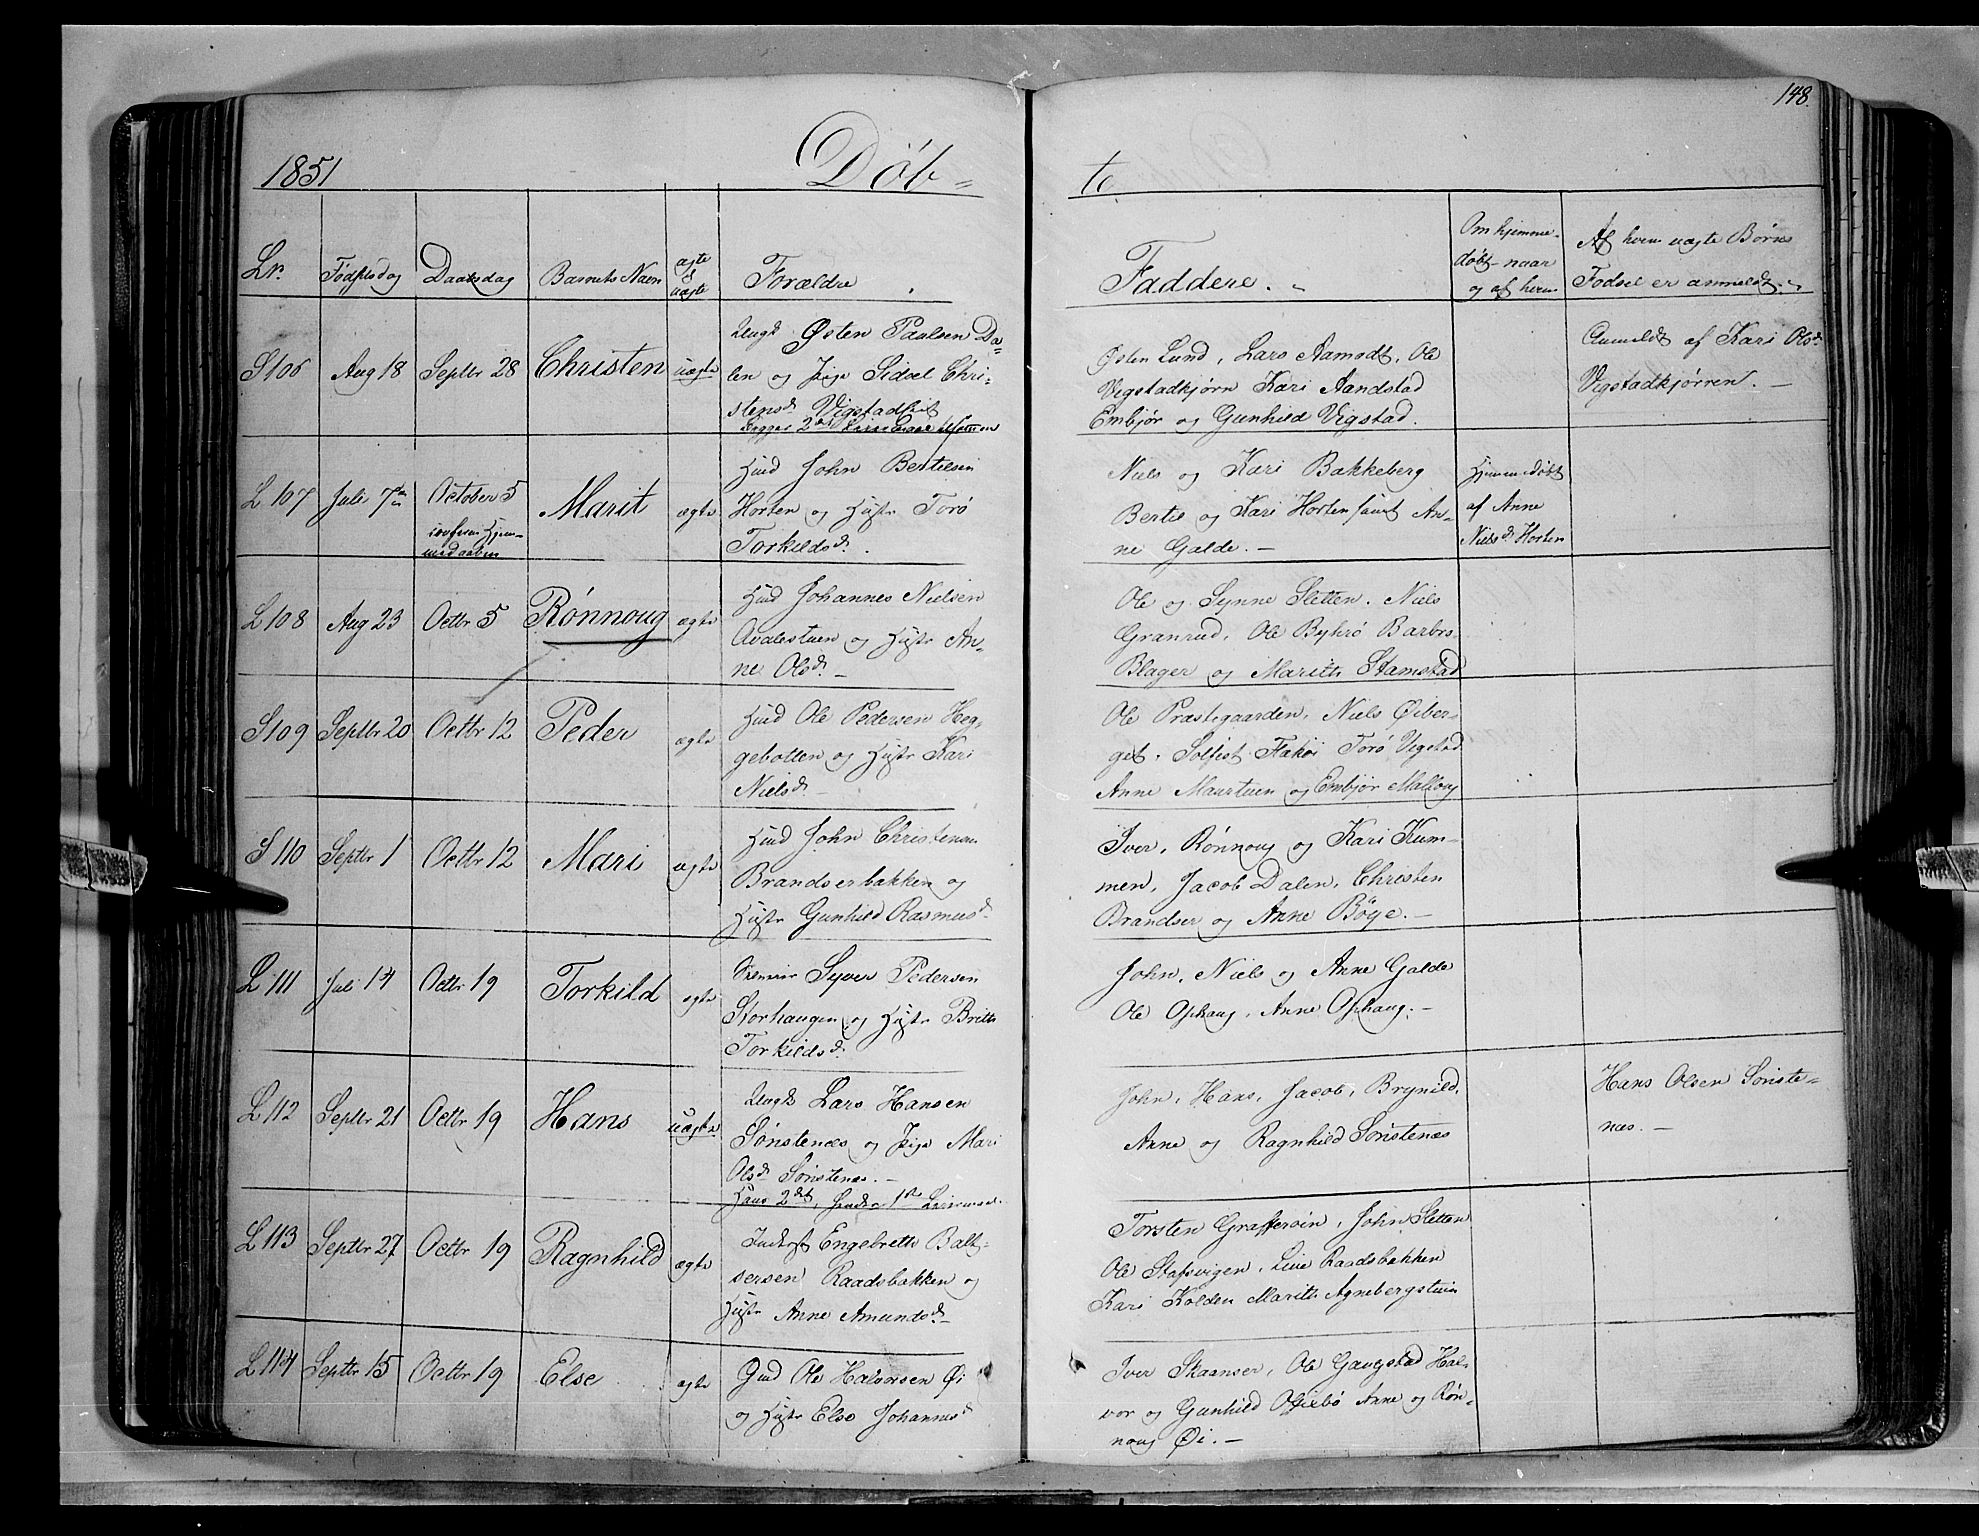 148.
1851 Døb=
te
Lr. Fødselsdag Daabsdag Barnets Navn ægte el uægte Forældre
Faddere. Om hjemme-
døbt - naar
og af hvem
Af hvem uægte Børns
Fødsel er anmeldt.
S 106 Aug 18 Septbr 28 Christen uægte
Ungk Østen Paulsen Da=
len og Pige Sidsel Chri-
stensd. Vigstad
Begges 2det Leiermaal
Østen Lund, Lars Aamodt, Ole
Vegstadkjørn Kari Aandstad
Embjør og Gunhild Vigstad.
Anmeldt af Kari Olsd.
Vigstadkjørren. -
L 107 Juli 7de October 5 Marit ægte
Hjem-
medaaben
Huusmd John Bertelsen
Horten og Hustr Torø
Torkildsd.
Niels og Kari Bakkeberg
Bertil og Kari Horten samt An-
ne Galde. -
Hjemmedøbt
af Anne
Nielsd. Horten
L 108 Aug 23 Octbr 5 Rønnoug ægte
Huusmd Johannes Nielsen
Avalestuen og Hustr An-
ne Olsd. -
Ole og Synne Sletten. Niels
Granrud, Ole Byhrø Barbro
Blager og Marith Stamstad
S 109 Septbr 20 Octbr 12 Peder ægte
Huusmd Ole Pedersen Heg-
gebotten og Hustr Kari
Nielsd. -
Ole Præstegaarden, Niels Øiber-
get. Solfist Flakøi Torø Vegstad
Anne Maurtuen og Embjør Malloug
S 110 Septbr 1 Octbr 12 Mari ægte
Huusmd John Christensen
Brandserbakken og
Hustr Gunhild Rasmusd.
Iver, Rønnoug og Kari Kum-
men, Jacob Dalen, Christen
Brandser og Anne Böge. -
L 111 Juli 14 Octbr 19 Torkild ægte
Syver Pedersen
Storhaugen og Hustr Brith
Torkildsd.
John, Niels og Anne Galde
Ole Ophaug, Anne Ophaug. -
L 112 Septbr 21 Octbr 19 Hans uægte
Ungk Lars Hansen
Sønstenæs og Pige Mari
Olsd. Sønstenæs. -
Hans 2det, hendes 1ste Leiermaal.
John, Hans, Jacob, Brynild,
Anne og Ragnhild Sønstenæs
Hans Olsen Sønste=
næs. -
L 113 Septbr 27 Octbr 19 Ragnhild ægte
Inderst Engebreth Balt-
sersen Raadsbakken og
Hustr Anne Amundsd. -
Torsten Grafferoin, John Sletten
Ole Stafsvigen, Live Raadsbakken
Kari Kolden Marith Agnebergstuen
L 114 Septbr 15 Octbr 19 Else ægte
Gmd Ole Halvorsen Øi
og Hustr Else Johannesd.
Iver Skaanser, Ole Gaugstad Hal-
vor og Gunhild Anne og Røn-
noug Øi. -